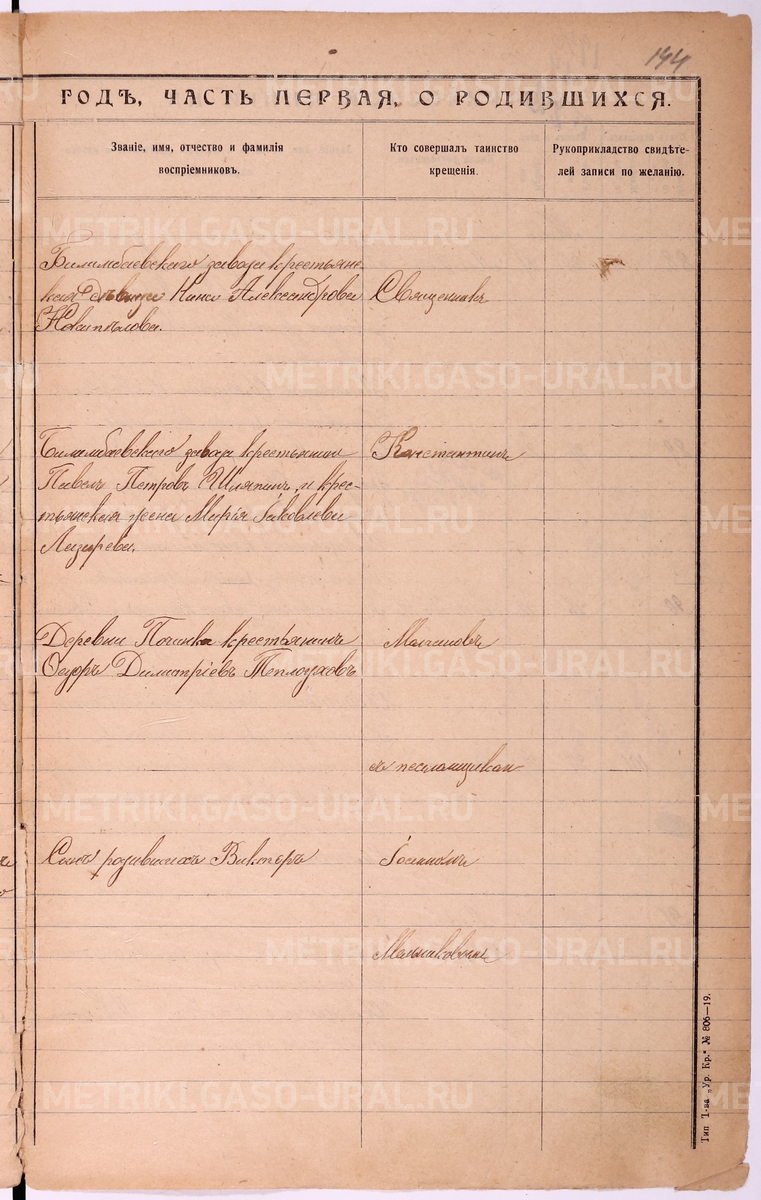 144
ГОДѢ, ЧАСТЬ ПЕРВАЯ, О РОДИВШИХСЯ.
Званіе, имя, отчество и фамилія
воспріемниковъ.
Кто совершалъ таинство
крещенія.
Рукоприкладство свидѣте-
лей записи по желанію.
Билимбаевскаго завода крестьянс-
кая дѣвица Нина Александрова
Священникъ
Билимбаевскаго завода крестьянинъ
Павелъ Петровъ Шляпинъ и крес-
тьянская жена Марія Іаковлева
Лазарева.
Константинъ
Деревни Починка крестьянинъ
Ѳедоръ Димитріевъ Теплоуховъ
съ псаломщикомъ
Сынъ родившихъ Викторъ
Іоанномъ
Мельниковымъ
Тип. Т-ва „Ур. Кр.“ № 806—19.
METRIKI.GASO-URAL.RU